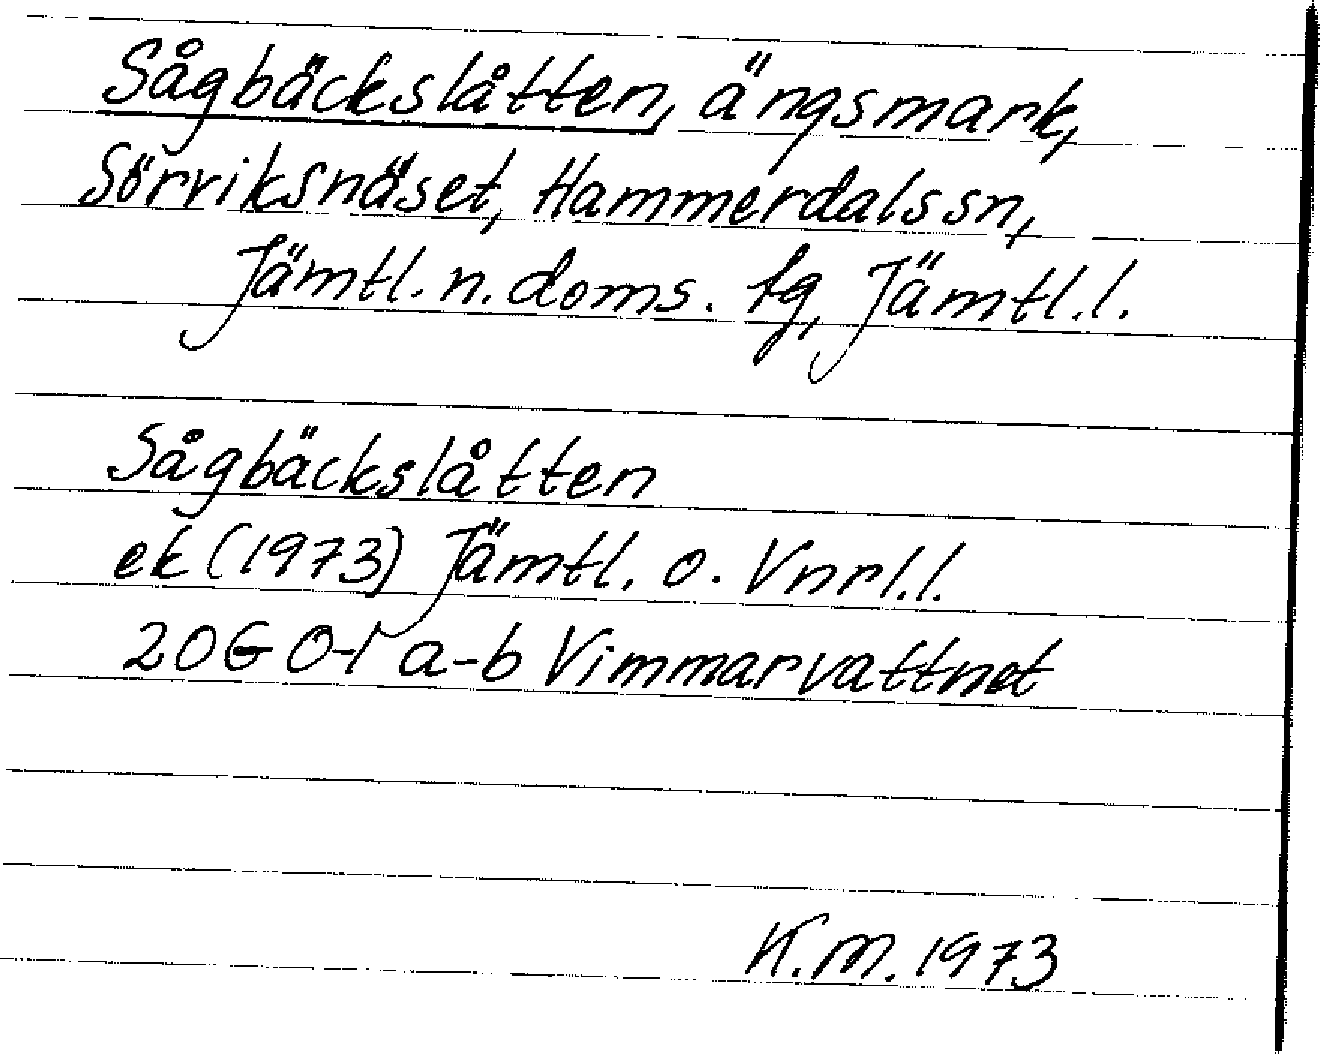 Sågbäckslåtten, ängsmark,
Sörviksnäset, Hammerdals sn,
Jämtl. n. doms. tg, Jämtl. l.
Sågbäckslåtten
ek (1973) Jämtl. o. Vnrl. l.
20G 0-1 a-b Vimmarvattnet
K.M. 1973